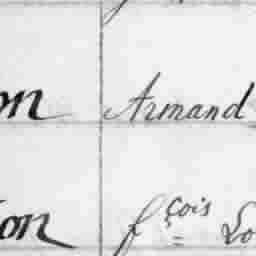 on Armand
on fçois Lo